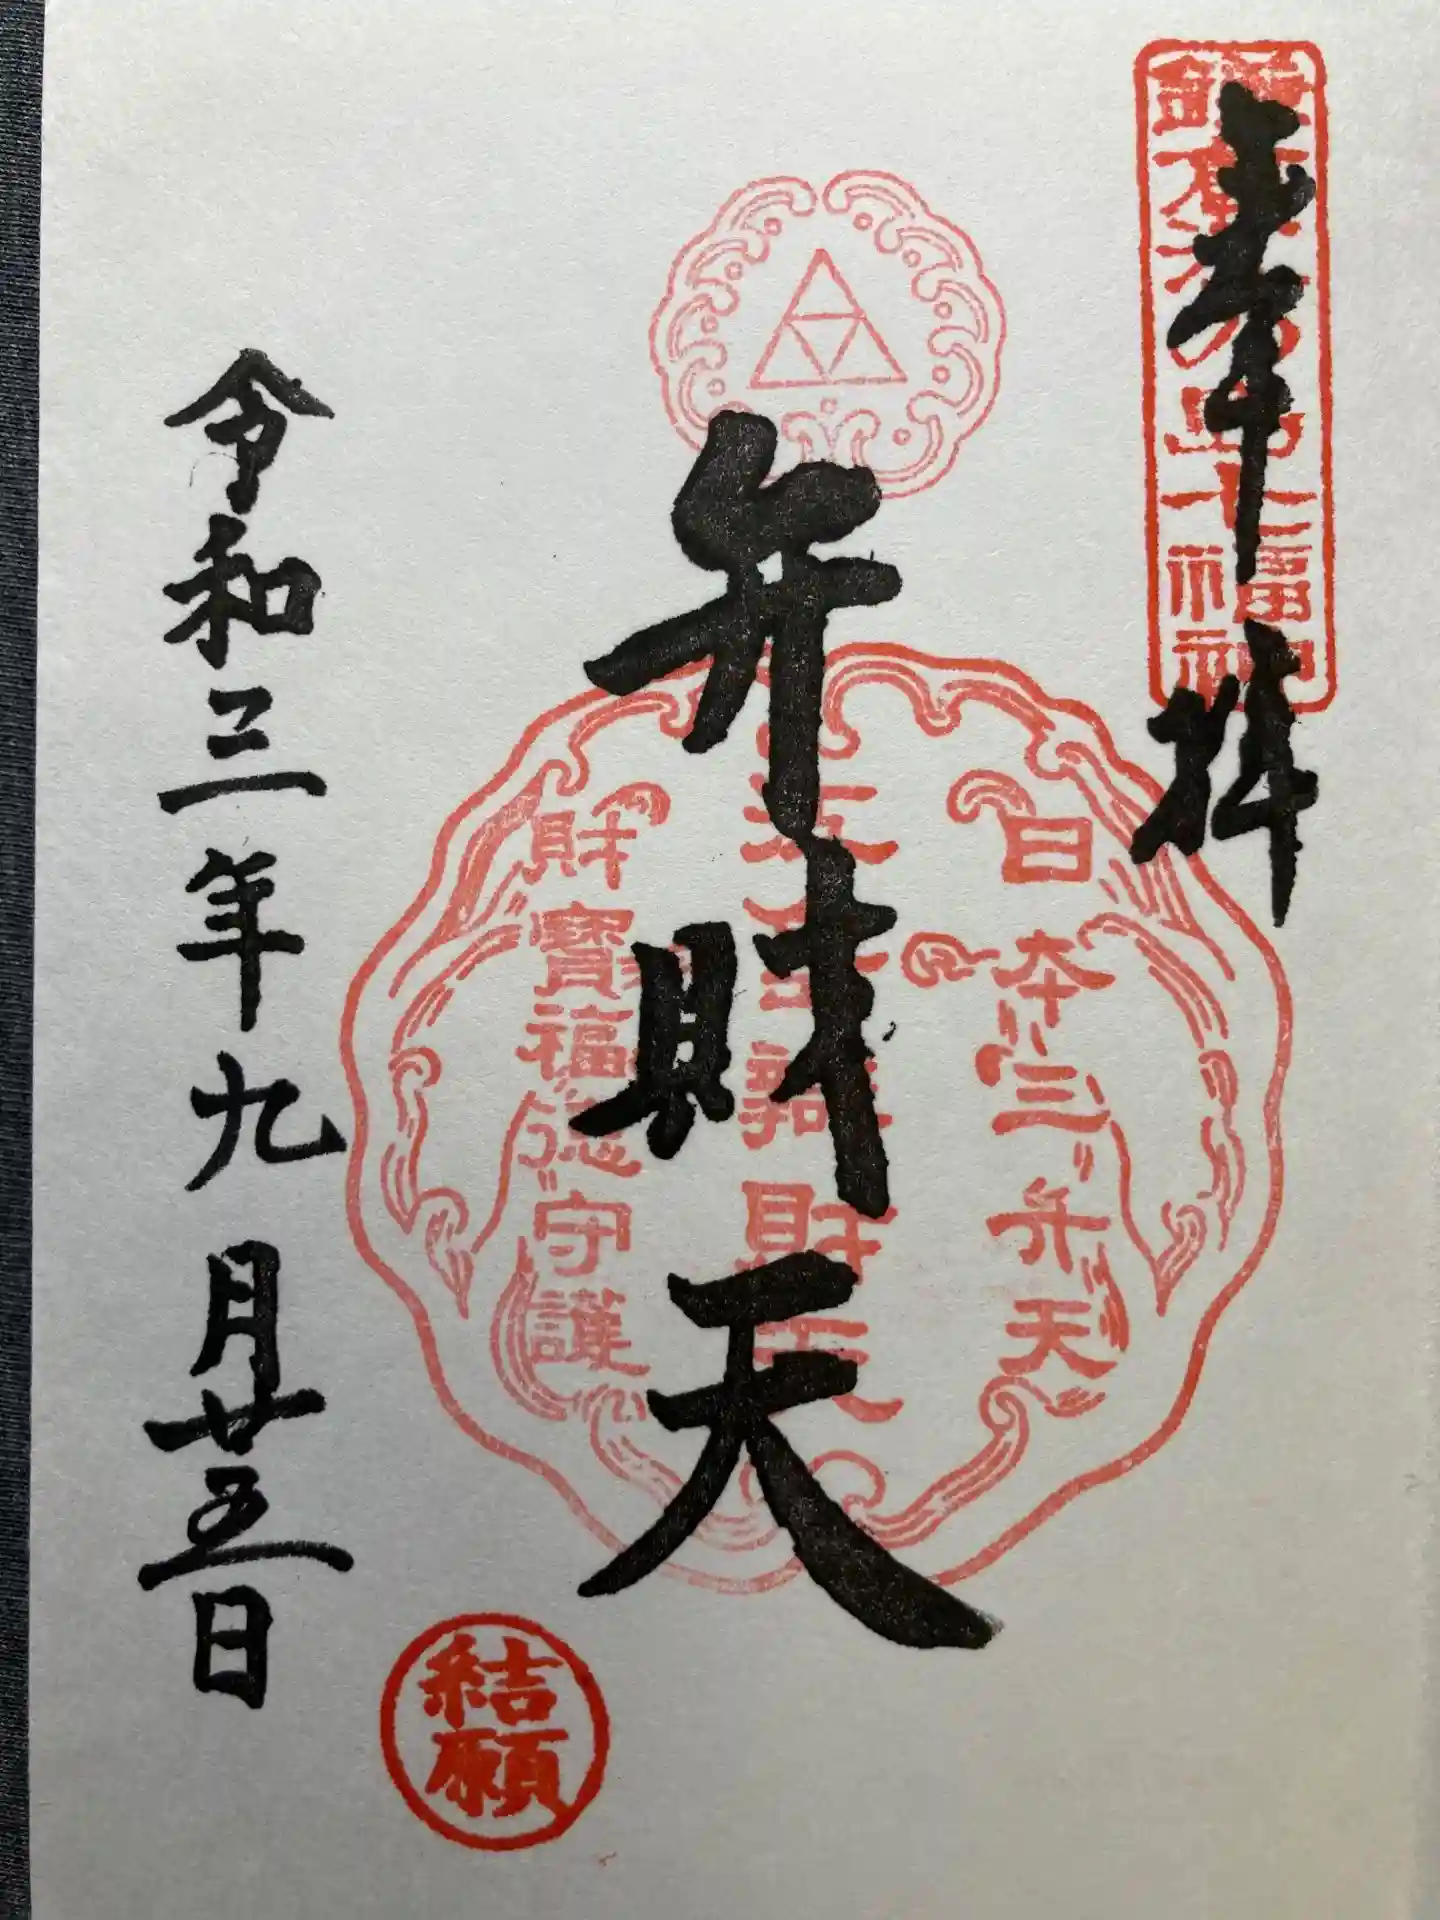 奉拝
鎌倉江ノ島七福神
弁財天
日本三弁天
財寶福徳守護
令和三年九月廿五日
結願